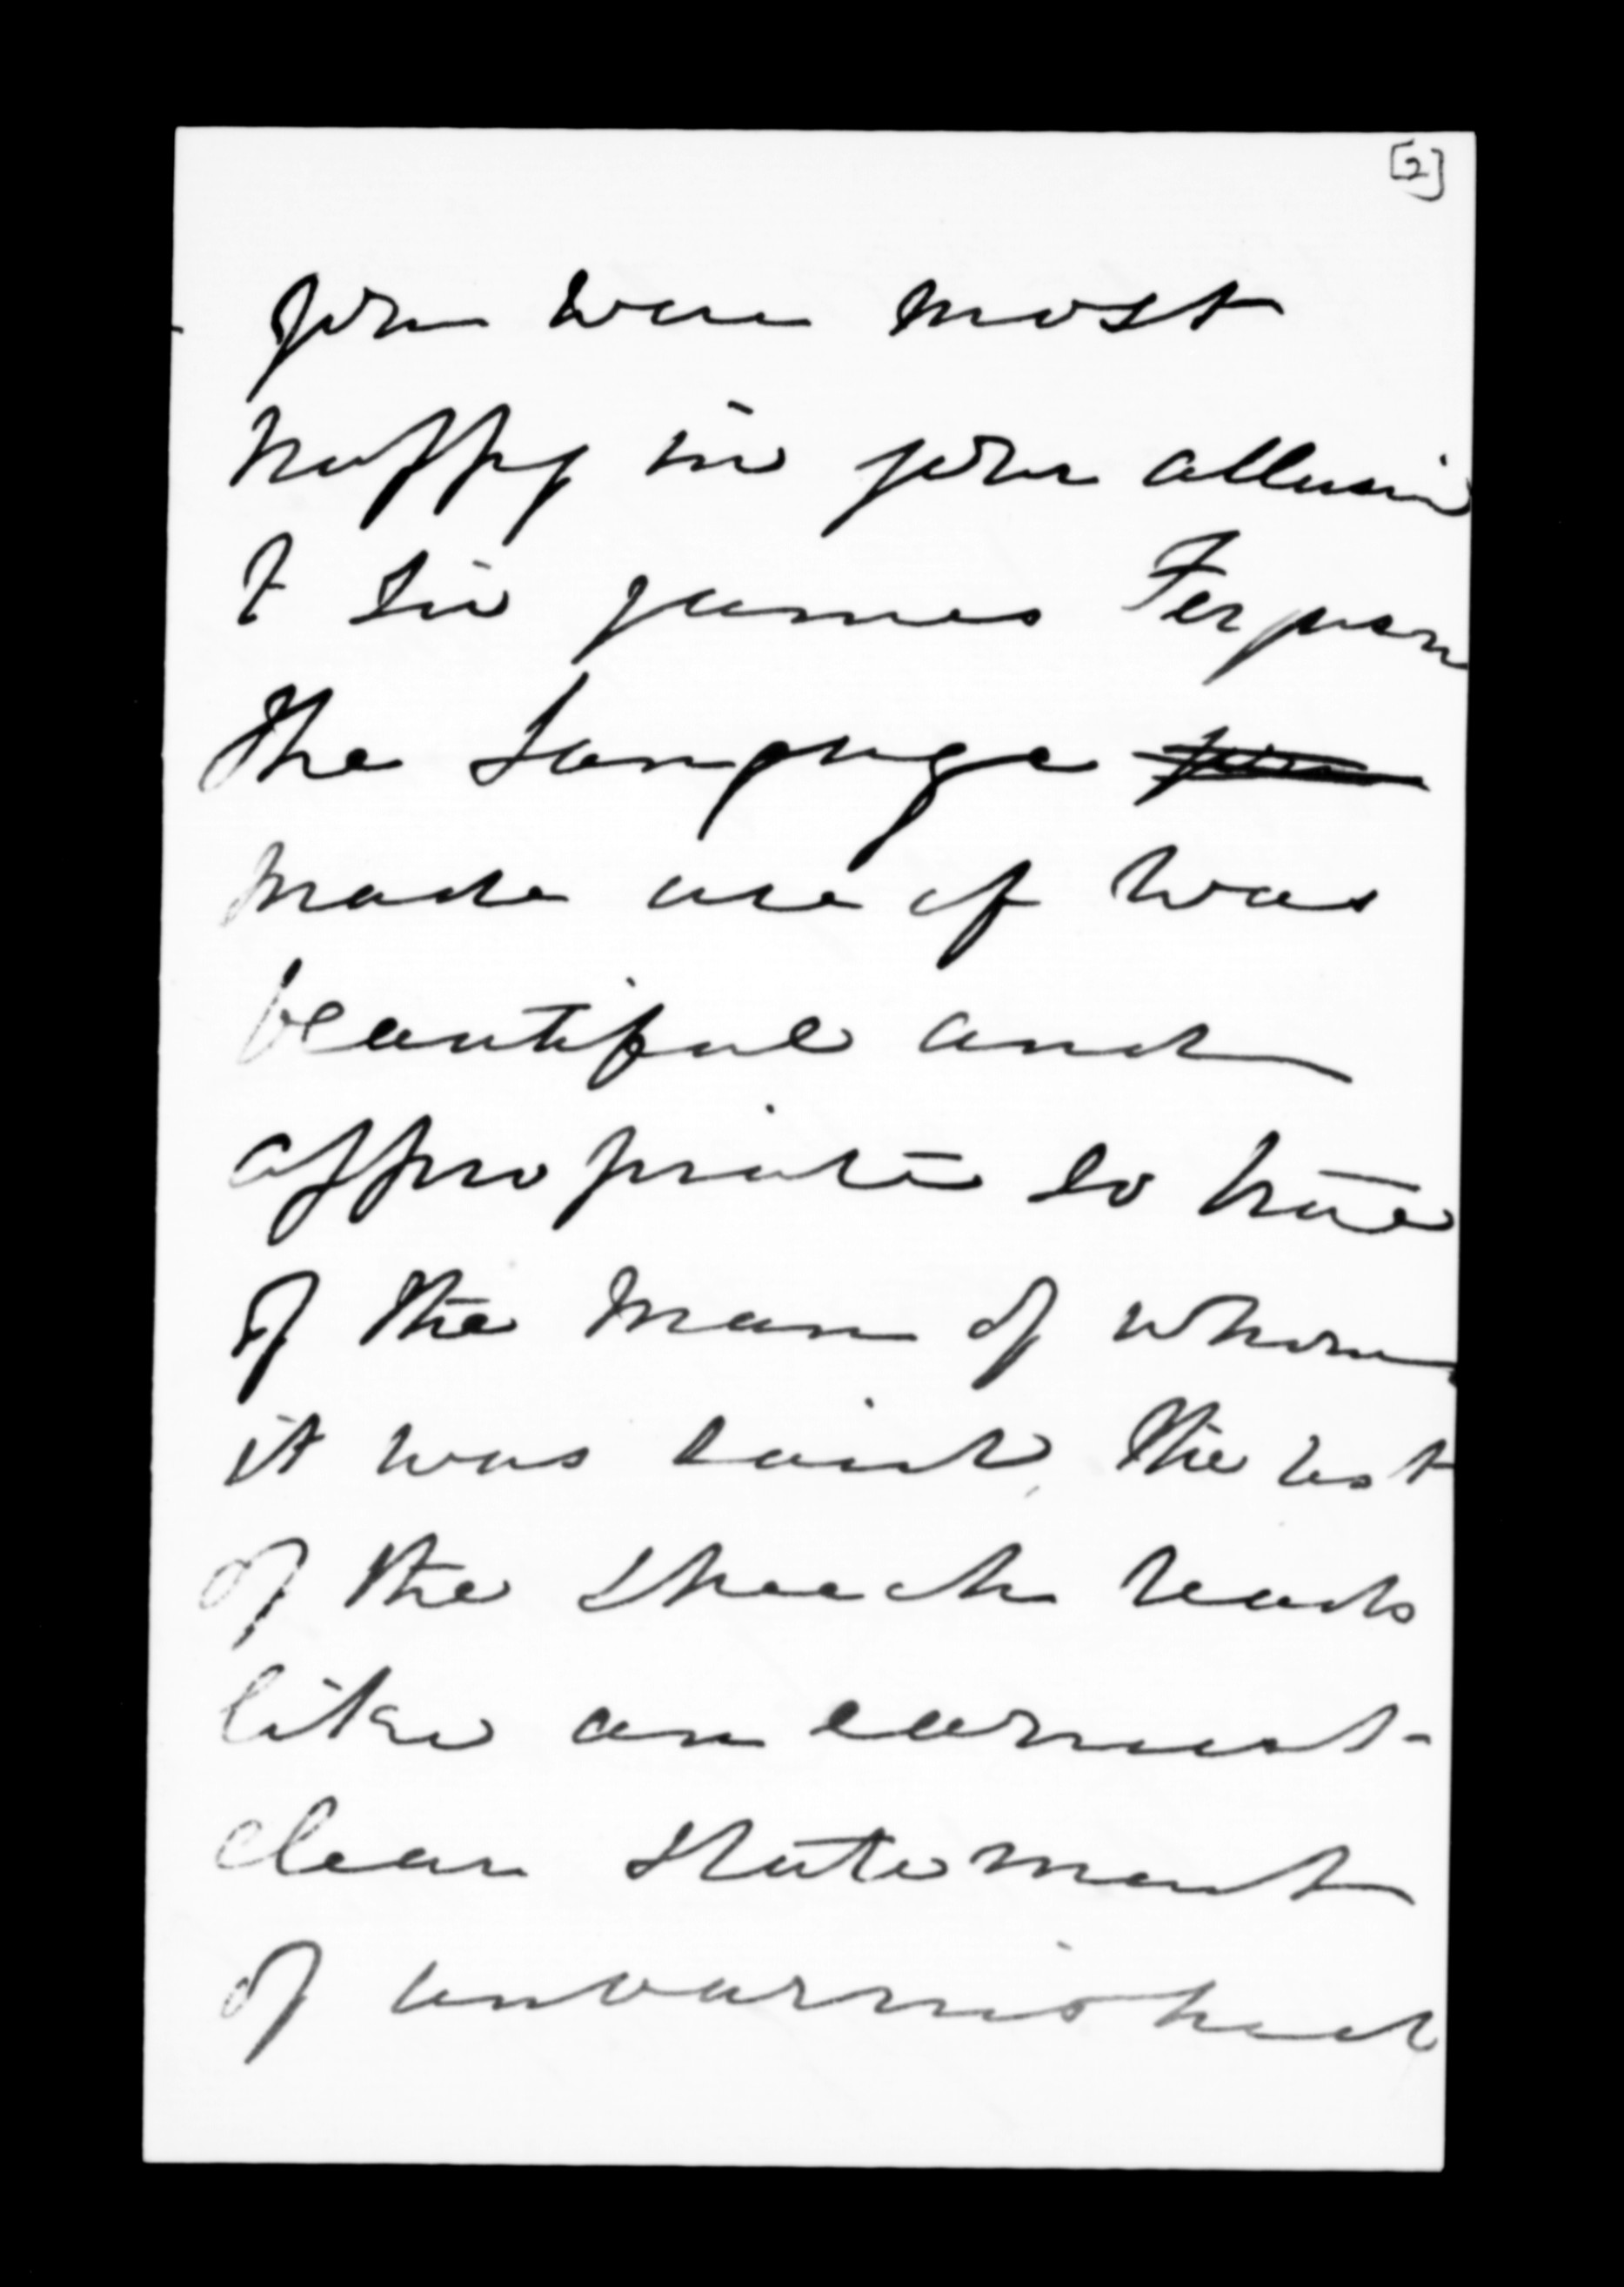 [2]
you were most
happy in your allusion
to Sir James Ferguson
The Language
made use of was
beautiful and
appropriate so true
of the man of whom
it was said, the rest
of the speech reads
like an earnest
clear statement
of unvarnished